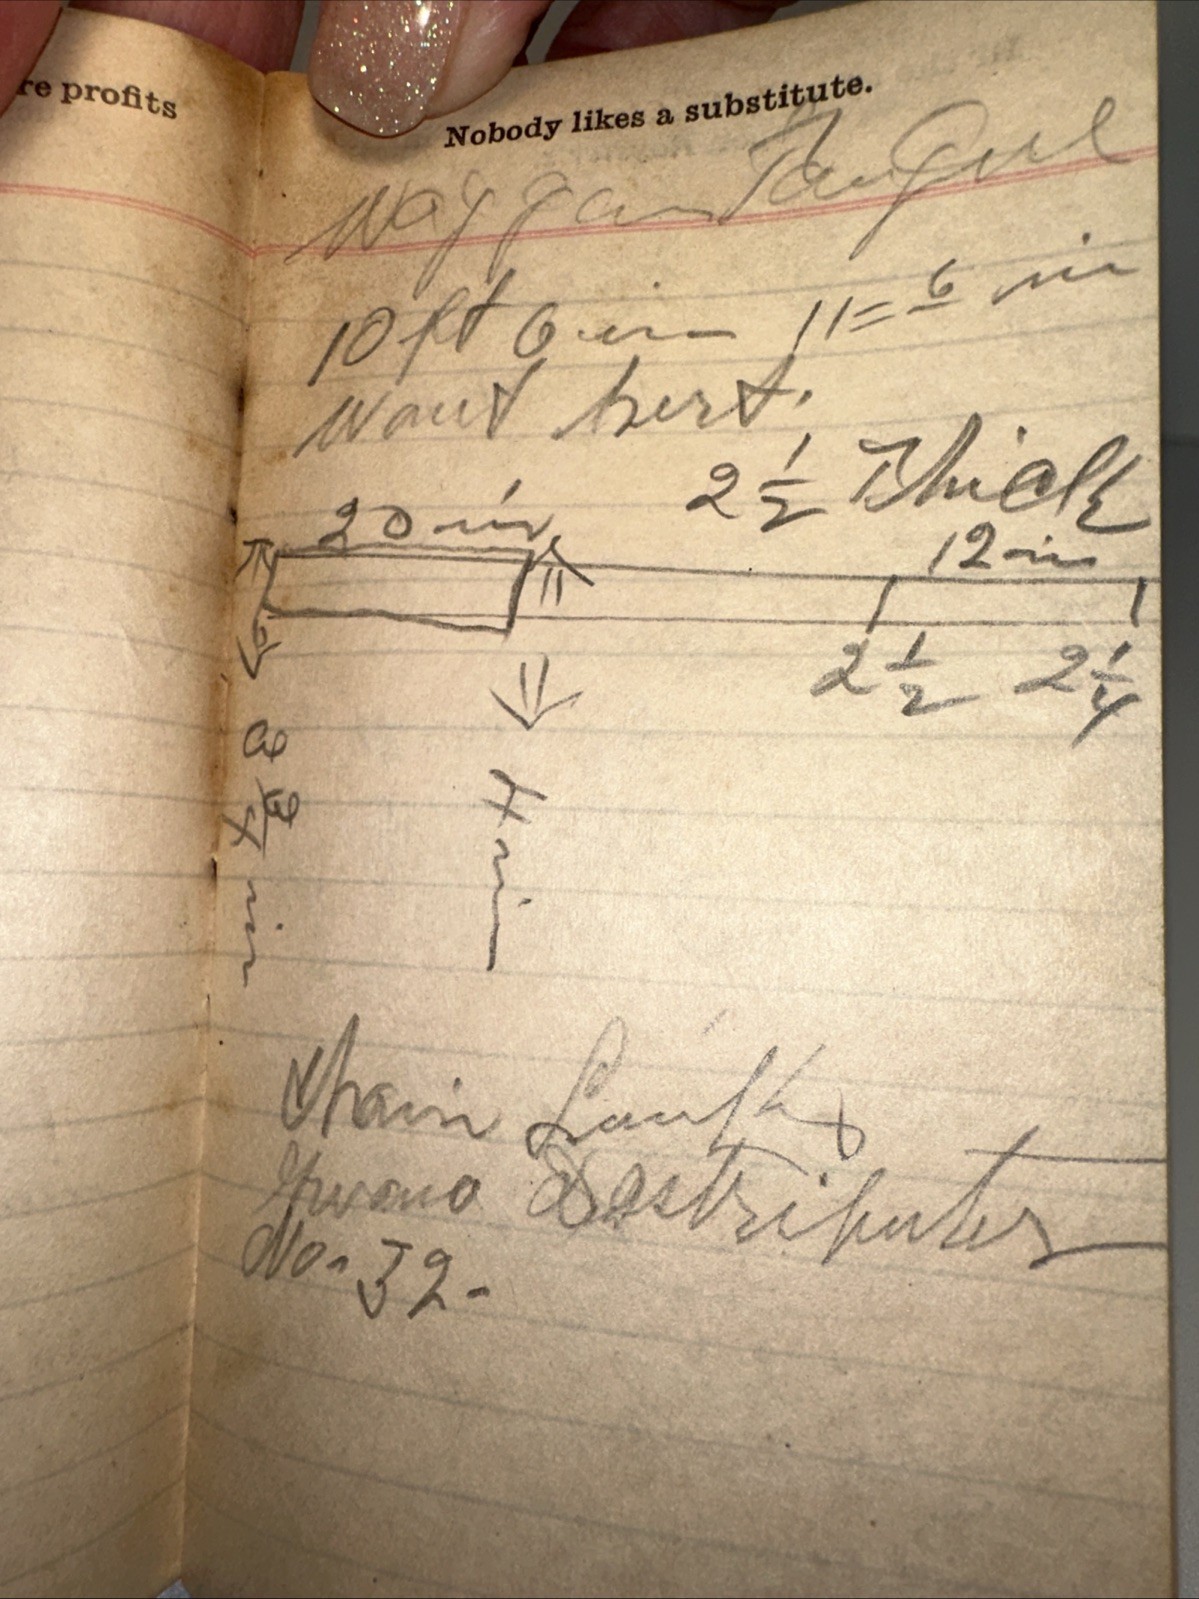 re profits
Nobody likes a substitute.
Waggan Tangue
10 ft 6 in 11 = 6 in
Want hert.
2 1/2 Thick
20 in
12 in
2 1/2 2 1/4
4 in
in
Chain Link
Guano Distributer
No. 32.